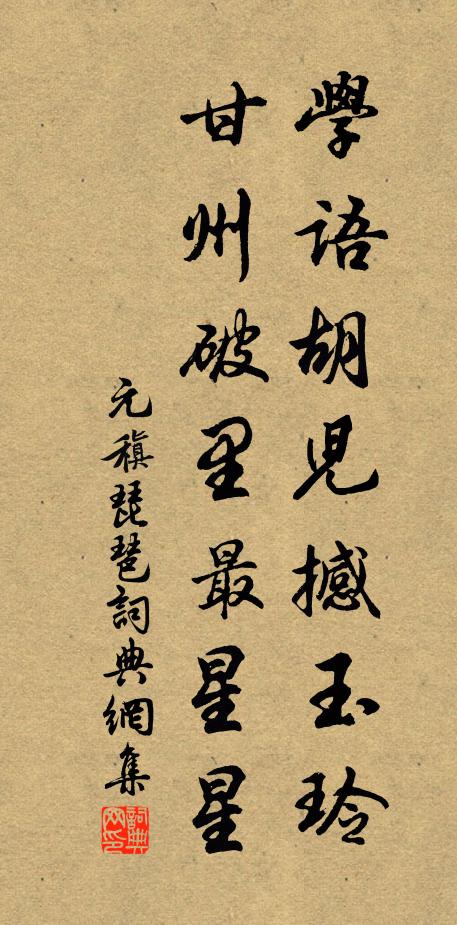 學語胡兒撼玉玲
甘州破里最星星
元稹琵琶詞典網集
詞典網印